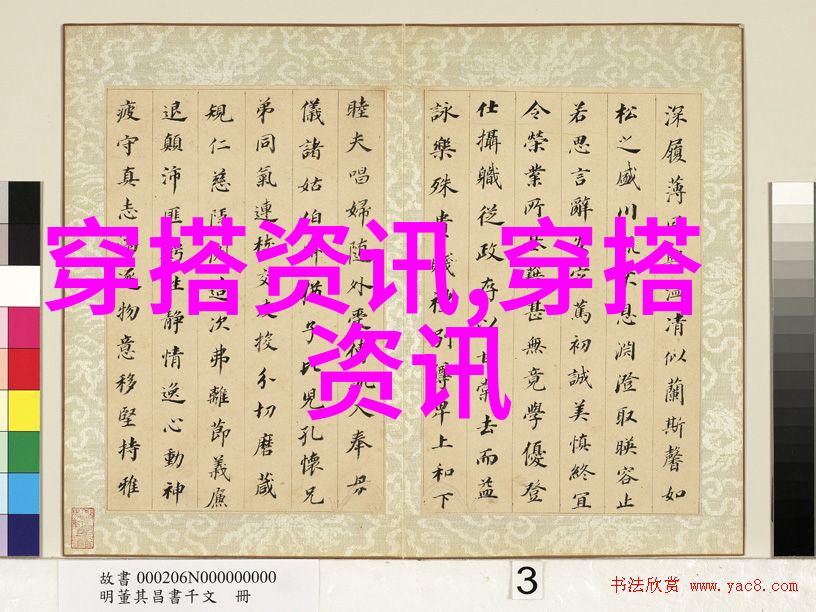 穿搭资讯,穿搭
资讯
深履薄溫清似蘭斯馨如
松之盛川息淵澄取暎容止
若思言辭篤初誠美慎終宜
令榮業所甚無竟學優登
仕攝職從政存以甘棠去而益
詠樂殊貴賤別尊卑上和下
睦夫唱婦随外受入奉母
儀諸姑伯猶子比兒孔懷兄
弟同氣連枝交友投分切磨箴
規仁慈造次弗離節義廉
退顛沛匪虧性靜情逸心動神
疲守真志逐物意移堅持雅
故書 000206N000000000
明董其昌書千文 冊
3
书法欣赏 www.yac8.com